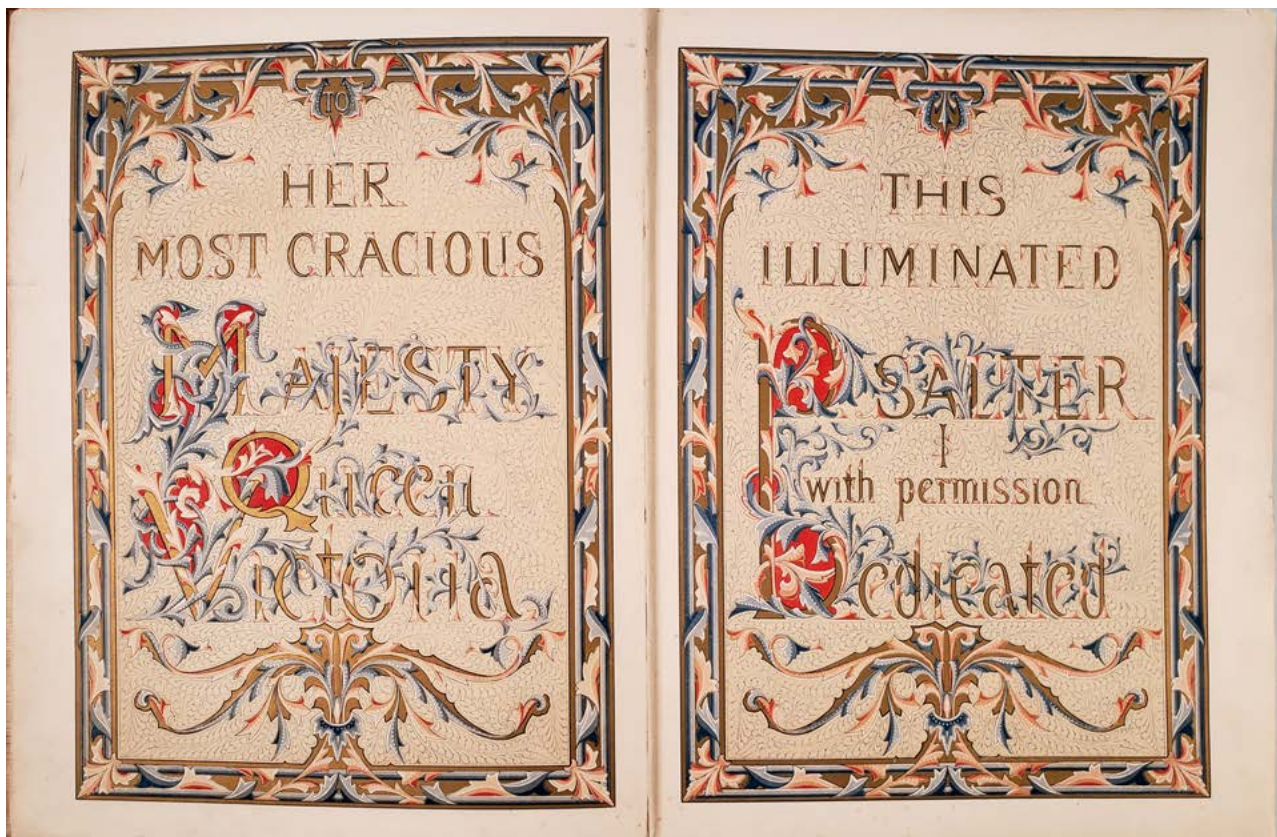 TO
HER
MOST GRACIOUS
MAJESTY
Queen
Victoria
THIS
ILLUMINATED
PSALTER
I
with permission
Dedicated